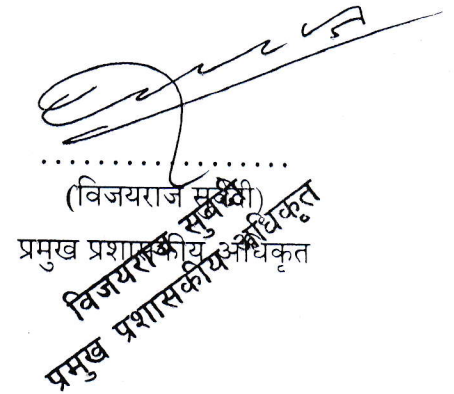 ....................
(विजयराज सुवेदी)
प्रमुख प्रशासकीय अधिकृत
विजयराज सुवेदी
प्रमुख प्रशासकीय अधिकृत